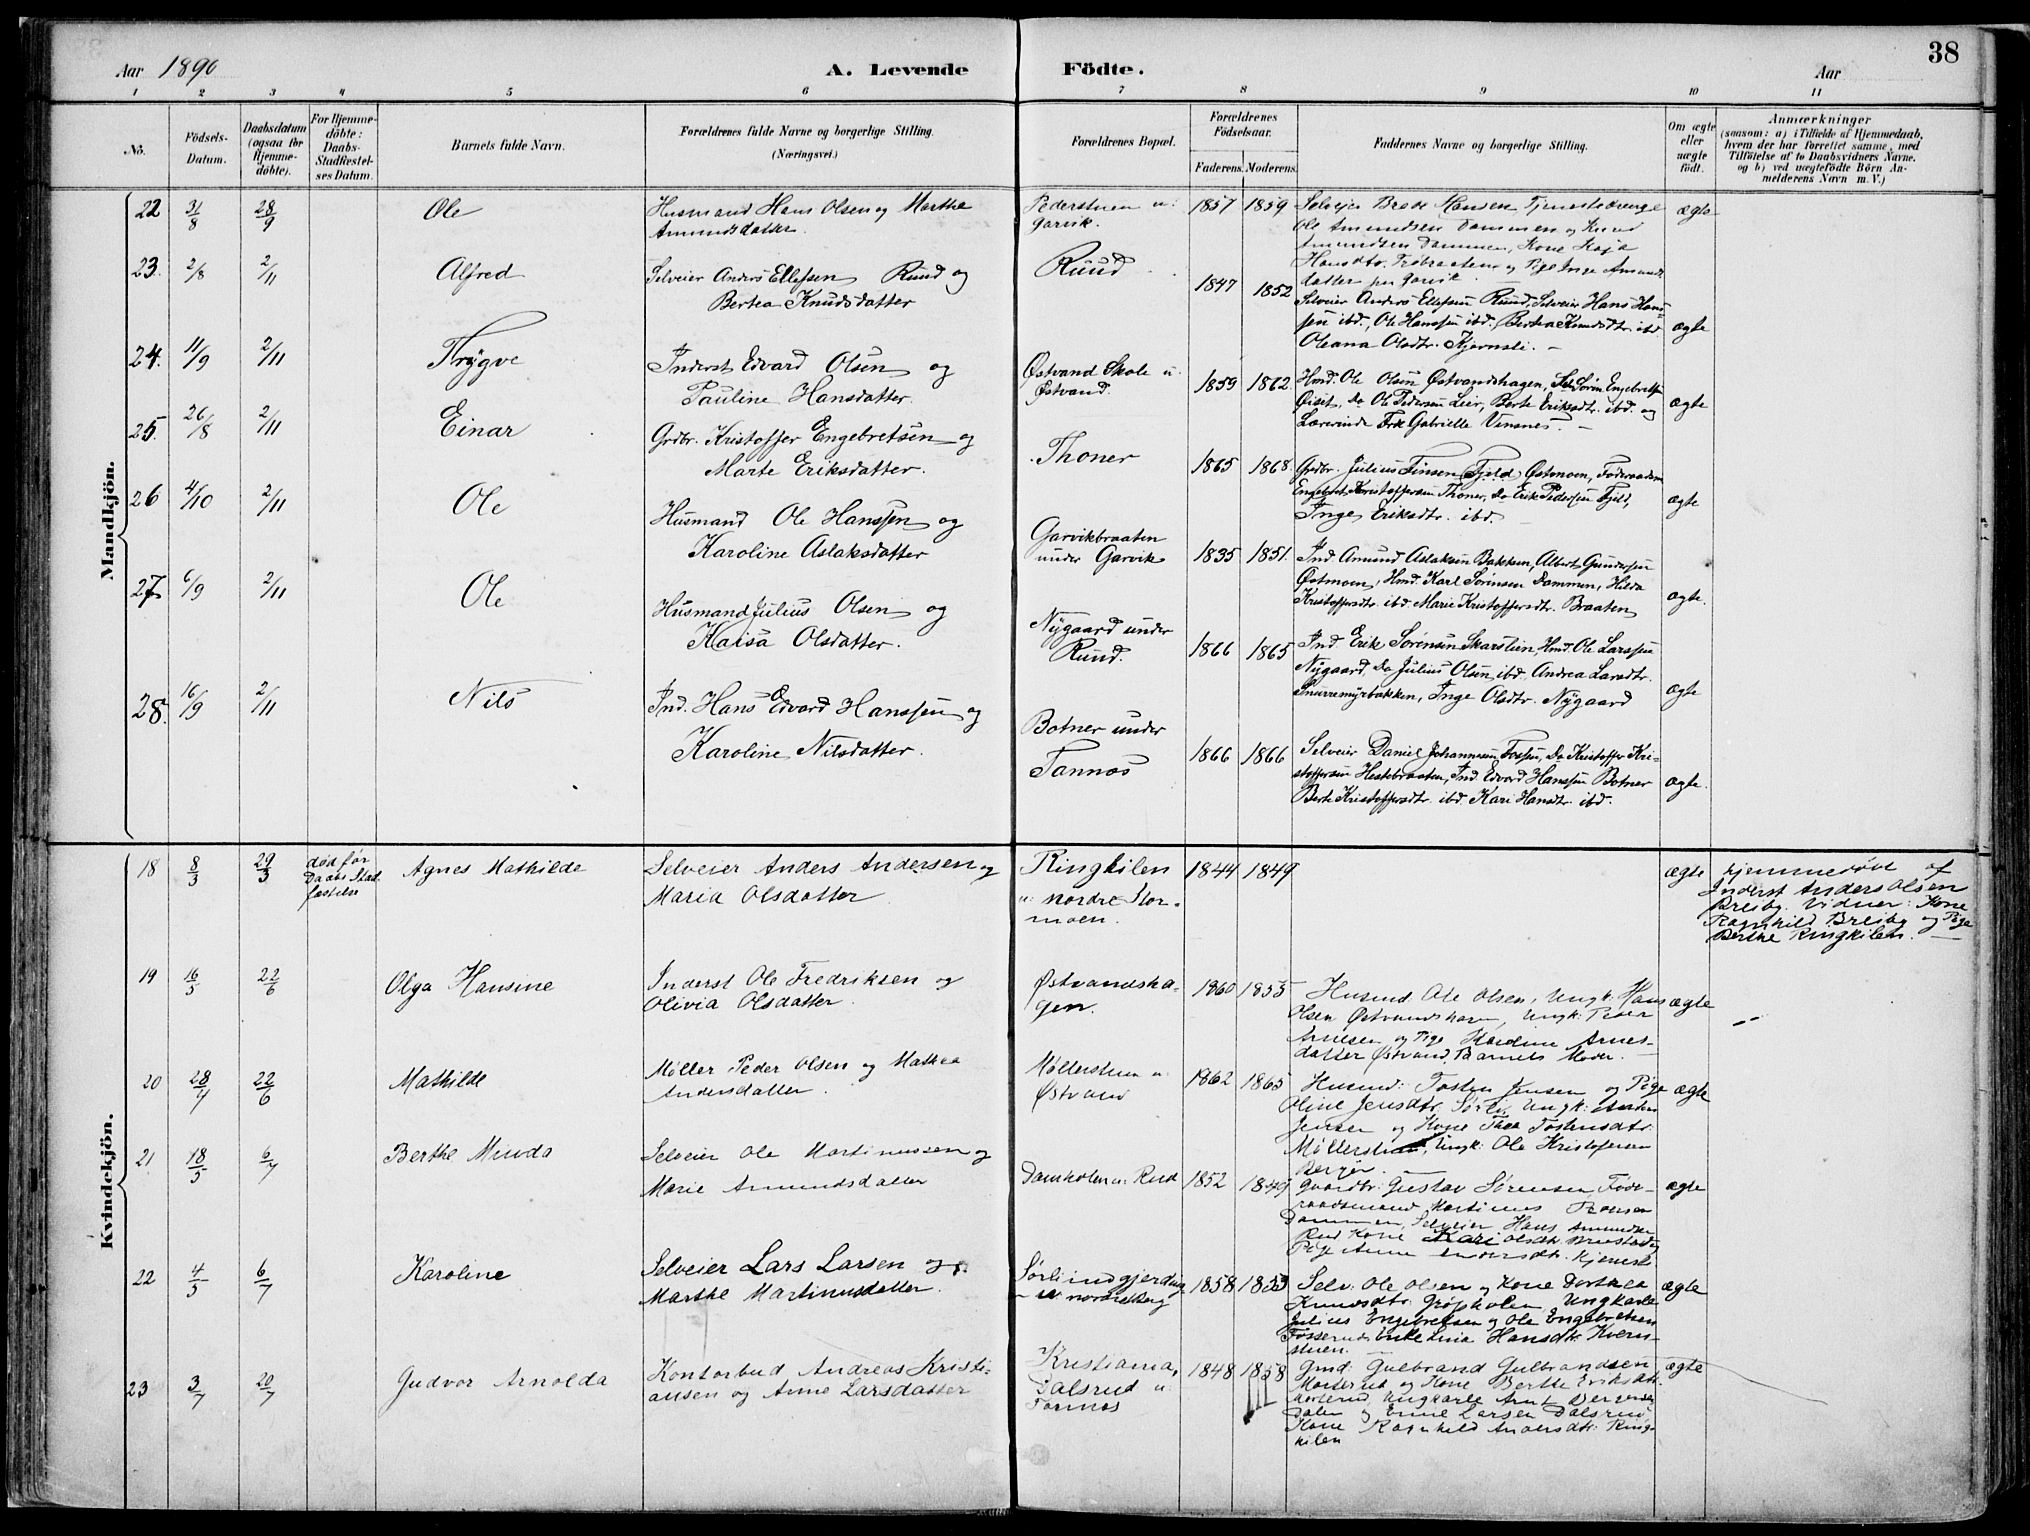 38
Aar 1890 A. Levende Födte. Aar
1 2 3 4 5 6 7 8 9 10 11
No. Födsels-Datum. Daabsdatum (ogsaa for Hjemme-döbte). For Hjemme-döbte: Daabs-Stadfæstel-ses Datum. Barnets fulde Navn. Forældrenes fulde Navne og borgerlige Stilling. (Næringsvei.) Forældrenes Bopæl. Forældrenes Födselsaar. Faderens. Moderens. Faddernes Navne og borgerlige Stilling. Om ægte eller uægte födt. Anmærkninger (saasom: a) i Tilfælde af Hjemmedaab, hvem der har forrettet samme, med Tilföielse af to Daabsvidners Navne, og b) ved uægtefödte Börn An-melderens Navn m. V.)
Mandkjön.
22 31/8 28/9 Ole Husmand Hans Olsen og Marthe
Amundsdatter. Pederstuen u:
Garvik. 1857 1859 Selvejer Brede Hansen Tjenestedrenge
Ole Amundsen Dammen og Knud
Amundsen Dammen, Kone Kaja
Hansdtr. og Pige Inge Amunds
datter Garvik. ægte
23. 2/8 2/11 Alfred Selveier Anders Ellefsen Ruud og
Berthea Knudsdatter Ruud 1847 1852 Selveier Anders Ellefsen Ruud, Selveier Hans Hans-
sen ibd., Ole Hanssen ibd. Berthea Knudsdtr. ibd.
Oleana Olsdtr. Kjernsli. - ægte
24. 11/9 2/11 Thrygve Inderst Edvard Olsen og
Pauline Hansdatter. Østvand Skole u.
Østvand. 1859 1862. Hmd. Ole Olsen Østvandshagen, Sel. Søren Engebretsen
Øiset, Do Ole Pedersen Leir, Berte Eriksdtr. ibd. og
Lærerinde Frk Gabrielle Vinsnes. - ægte
25. 26/8 2/11 Einar Grdbr. Kristoffer Engebretsen og
Marte Eriksdatter. Thoner 1865 1868. Grdbr. Julius Finsen Fjeld, Østmoen, Føderaadsm.
Engebret Kristoffersen Thoner, Do Erik Pedersen Fjeld,
Inge Eriksdtr. ibd. ægte
26 4/10 2/11 Ole Husmand Ole Hanssen og
Karoline Aslaksdatter Garvikbraaten
under Garvik 1835 1851. Ind. Amund Aslaksen Bakken, Albert Gundersen
Østmoen, Hmd. Karl Sørensen Dammen, Hilda
Kristoffersdtr. ibd. Marie Kristoffersdtr. Braaten ægte.
27 6/9 2/11 Ole Husmand Julius Olsen og
Kaisa Olsdatter. Nygaard under
Ruud. 1866 1865 Ind. Erik Sørensen Skarstien, Hmd. Ole Larssen
Nygaard, Do Julius Olsen ibd. Andrea Larsdtr.
Snurremyrbakken, Inge Olsdtr. Nygaard ægte
28. 16/9 2/11 Nils Ind. Hans Edvard Hanssen og
Karoline Nilsdatter. Botner under
Tannæs 1866 1866 Selveier Daniel Johannesen Fossen, Do Kristoffer Kri-
stoffersen Hestebraaten, Ind. Edvard Hanssen Botner
Berte Kristoffersdtr. ibd. Kari Hansdtr. ibd. ægte.
Kvindekjön.
18 8/3 29/3 død før
Daabs Stad
fæstelse Agnes Mathilde Selveier Anders Andersen og
Maria Olsdatter Ringkilen
u: nordre Stor-
moen. 1844 1849 ægte hjemmedøbt af
Inderst Anders Olsen
Breiby. Vidner: Kone
Ragnhild Breiby og Pige
Berthe Ringkilen. -
19 16/5 22/6 Olga Hansine Inderst Ole Fredriksen og
Olivia Olsdatter. Østvandsha-
gen. 1860 1855 Husmd. Ole Olsen, Ungk: Hans
Olsen Østvandshagen, Ungk: Peder
Arnesen og Pige Karoline Arnes-
datter Østvand, Barnets Moder. ægte
20 28/4 22/6 Mathilde Møller Peder Olsen og Mathea
Andersdatter. Møllerstuen u:
Østvand 1862 1865 Husmd: Tosten Jensen og Pige
Oline Jensdtr. Sørli, Ungk: Anders
Jensen og Kone Thea Tostensdtr.
Møllerstuen, Ungk: Ole Kristofersen
Berger. ægte
21 18/5 6/7 Berthe Minda Selveier Ole Martinussen og
Marie Amundsdatter Damholen u: Rud 1852 1849 Gaardbr: Gustav Sørensen, Føde-
raadsmand Martinus
Dammen, Selveier Hans Amundsen
Rud Kone Kari Olsdtr.
Pige Anne Andersdtr. Kjernsli ægte
22 4/5 6/7 Karoline Selveier Lars Larsen og
Marthe Martinusdatter. Sørli indgjerding
u nordre Berg 1858 1853 Selv: Ole Olsen og Kone Dorthea
Knudsdtr: Ungkarle
Julius Engebretsen og Ole Engebretsen
Fosserud, Enke Lina Hansdtr. Kvern-
stuen. ægte
23 3/7 20/7 Gudvor Arnolda Kontorbud Andreas Kristi-
ansen og Anne Larsdatter Kristiania,
Dalsrud u
Tannæs 1848 1858 Gmd. Gulbrand Gulbrandsen
Morterud og Kone Berthe Eriksdtr.
Morterud, Ungkarle
Dalen og Larsen Dalsrud
Kone Ragnhild Andersdtr. Ring-
kilen ægte